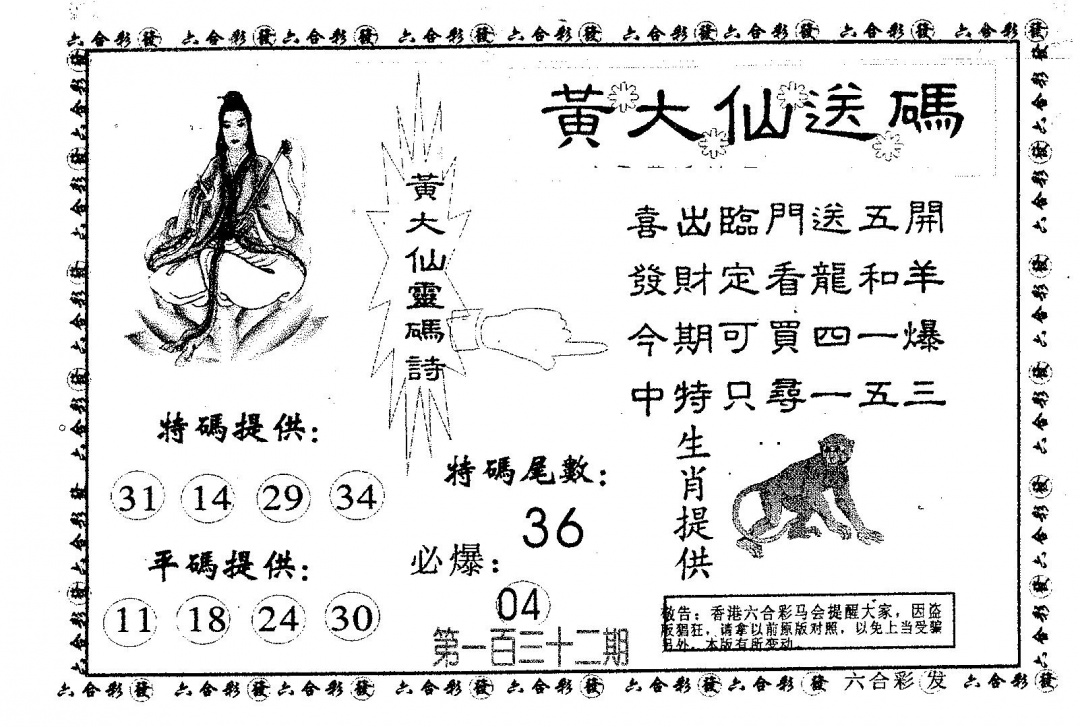 六合彩發 六合彩發 六合彩發 六合彩發 六合彩發 六合彩發 六合彩發 六合彩發 六合彩發
黃大仙送碼
黃大仙靈碼詩
喜出臨門送五開
發財定看龍和羊
今期可買四一爆
中特只尋一五三
特碼提供:
31 14 29 34
平碼提供:
11 18 24 30
特碼尾數:
36
必爆:
04
第一百三十二期
生肖提供
敬告：香港六合彩马会提醒大家，因盗
版猖狂，请拿以前原版对照，以免上当受骗
另外，本版有所变动。
六合彩發 六合彩發 六合彩發 六合彩發 六合彩發 六合彩發 六合彩發 六合彩发 六合彩發